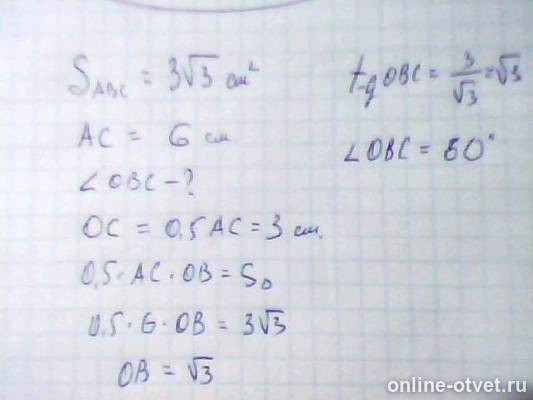 S_ABC = 3√3 см²
AC = 6 см
∠OBC - ?
OC = 0,5 AC = 3 см.
0,5 · AC · OB = S_Δ
0,5 · 6 · OB = 3√3
OB = √3
tg OBC = 3/√3 = √3
∠OBC = 60°
online-otvet.ru